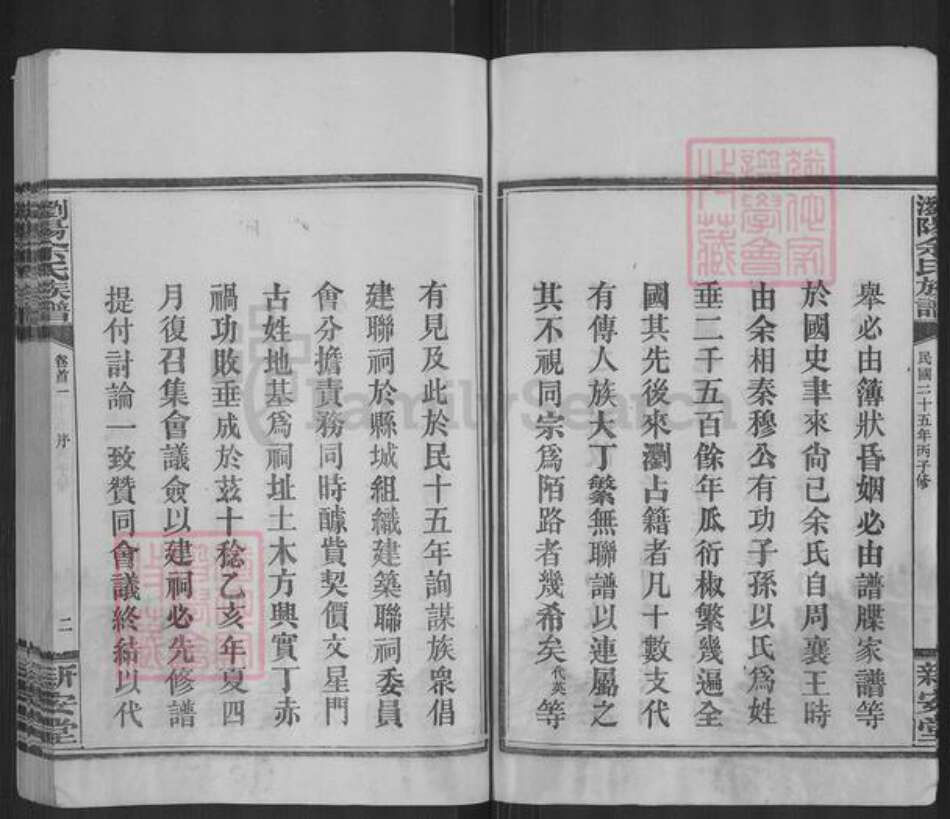 瀏陽余氏族譜
民國二十五年丙子修
新安堂
舉必由簿狀昏姻必由譜牒家譜等
於國史聿來尙已余氏自周襄王時
由余相秦穆公有功子孫以氏爲姓
垂二千五百餘年瓜衍椒繁幾遍全
國其先後來瀏占籍者凡十數支代
有傳人族大丁繁無聯譜以連屬之
其不視同宗爲陌路者幾希矣代英等
有見及此於民十五年詢謀族衆倡
建聯祠於縣城組織建築聯祠委員
會分擔責務同時醵貲契價文星門
古姓地基爲祠址土木方興實丁赤
禍功敗垂成於茲十稔乙亥年夏四
月復召集會議僉以建祠必先修譜
提付討論一致贊同會議終結以代
瀏陽余氏族譜
卷首一
序
二
新安堂
FamilySearch